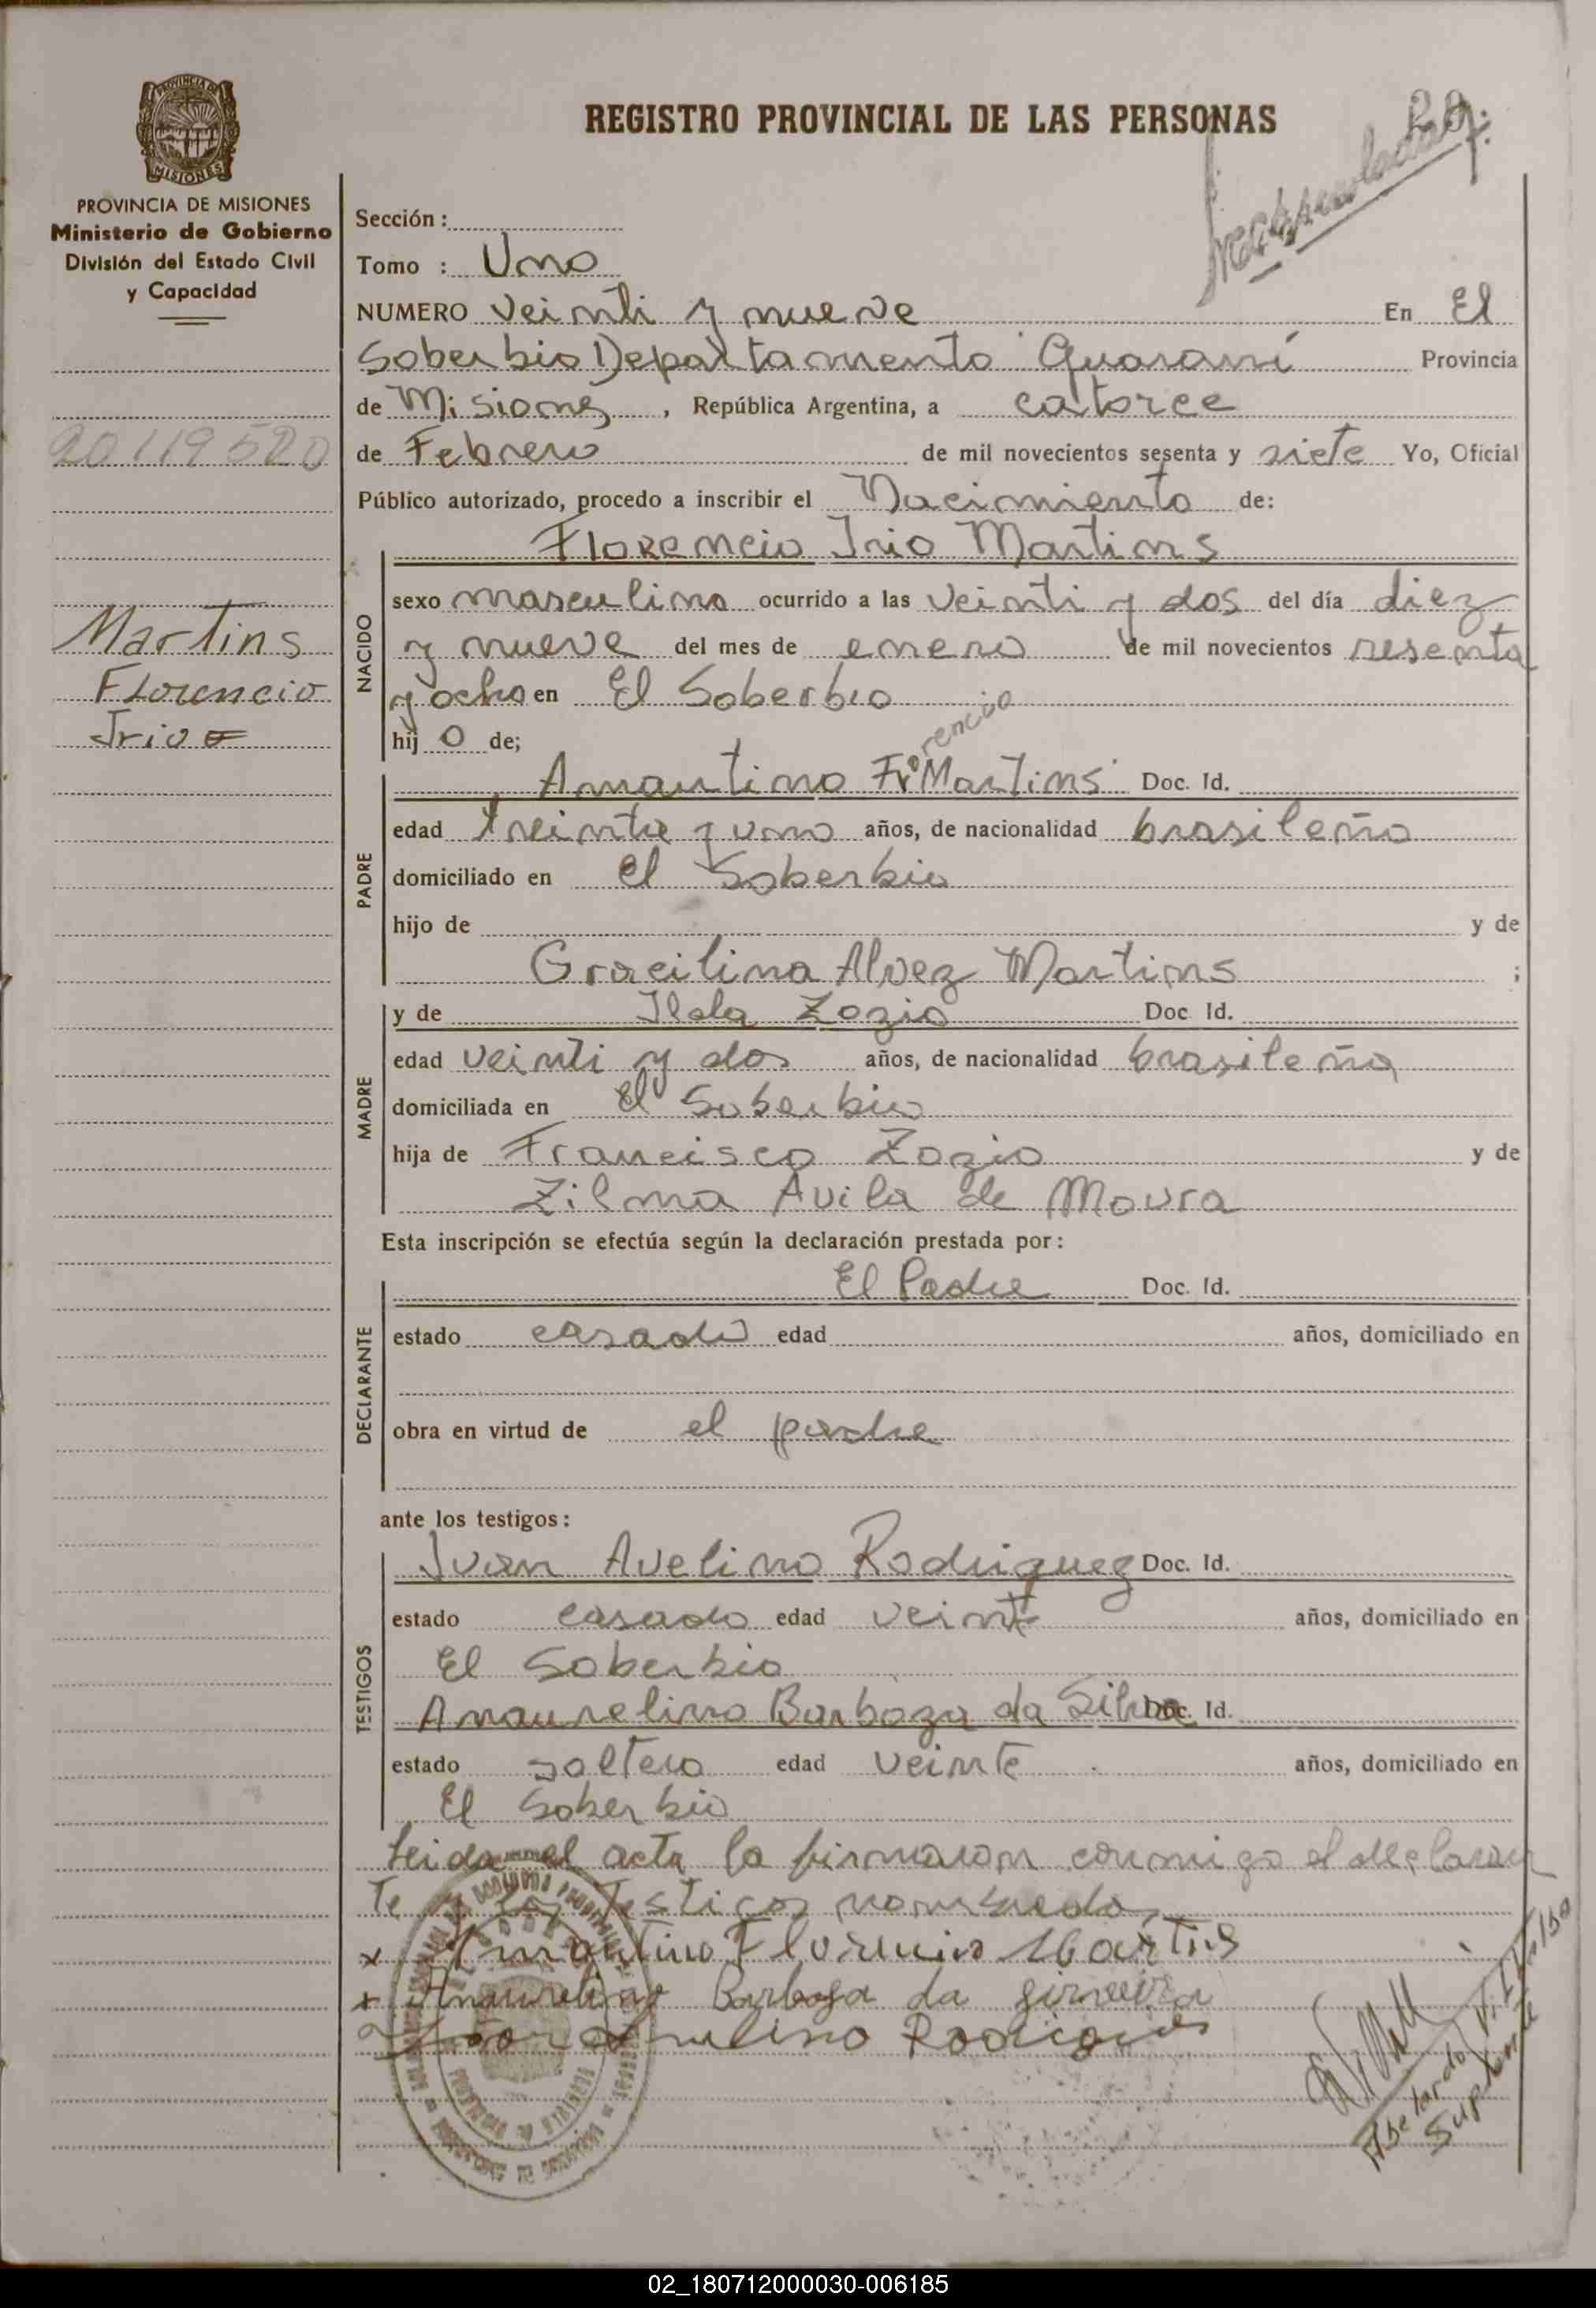 PROVINCIA DE
MISIONES
PROVINCIA DE MISIONES
Ministerio de Gobierno
División del Estado Civil
y Capacidad
20119520
Martins
Florencio
Irio
REGISTRO PROVINCIAL DE LAS PERSONAS
29
Sección :
Tomo : Uno
NUMERO veinti y nueve En El
Soberbio Departamento Guaraní Provincia
de Misiones, República Argentina, a catorce
de Febrero de mil novecientos sesenta y siete Yo, Oficial
Público autorizado, procedo a inscribir el Nacimiento de:
Florencio Irio Martins
NACIDO
sexo masculino ocurrido a las veinti y dos del día diez
y nueve del mes de enero de mil novecientos sesenta
y ocho en El Soberbio
hij o de;
rencio
PADRE
Amantino Fl Martins Doc. Id.
edad treinta y uno años, de nacionalidad brasileño
domiciliado en El Soberbio
hijo de y de
Gracilina Alvez Martins ;
MADRE
y de Ilda Zozio Doc Id.
edad veinti y dos años, de nacionalidad brasileña
domiciliada en El Soberbio
hija de Francisco Zozio y de
Zilma Avila de Moura
Esta inscripción se efectúa según la declaración prestada por:
DECLARANTE
El Padre Doc. Id.
estado casado edad años, domiciliado en
obra en virtud de el padre
ante los testigos:
TESTIGOS
Juan Avelino Rodriguez Doc. Id.
estado casado edad veinte años, domiciliado en
El Soberbio
Amaurelino Barboza da Silva Doc. Id.
estado soltero edad veinte años, domiciliado en
El Soberbio
Leida el acta la firmaron conmigo el declaran
te y los testigos nombrados
x Amantino Florencio Martins
x Amaurelino Barbosa da
Avelino Rodrigues
Abelardo
Suplente
02_180712000030-006185